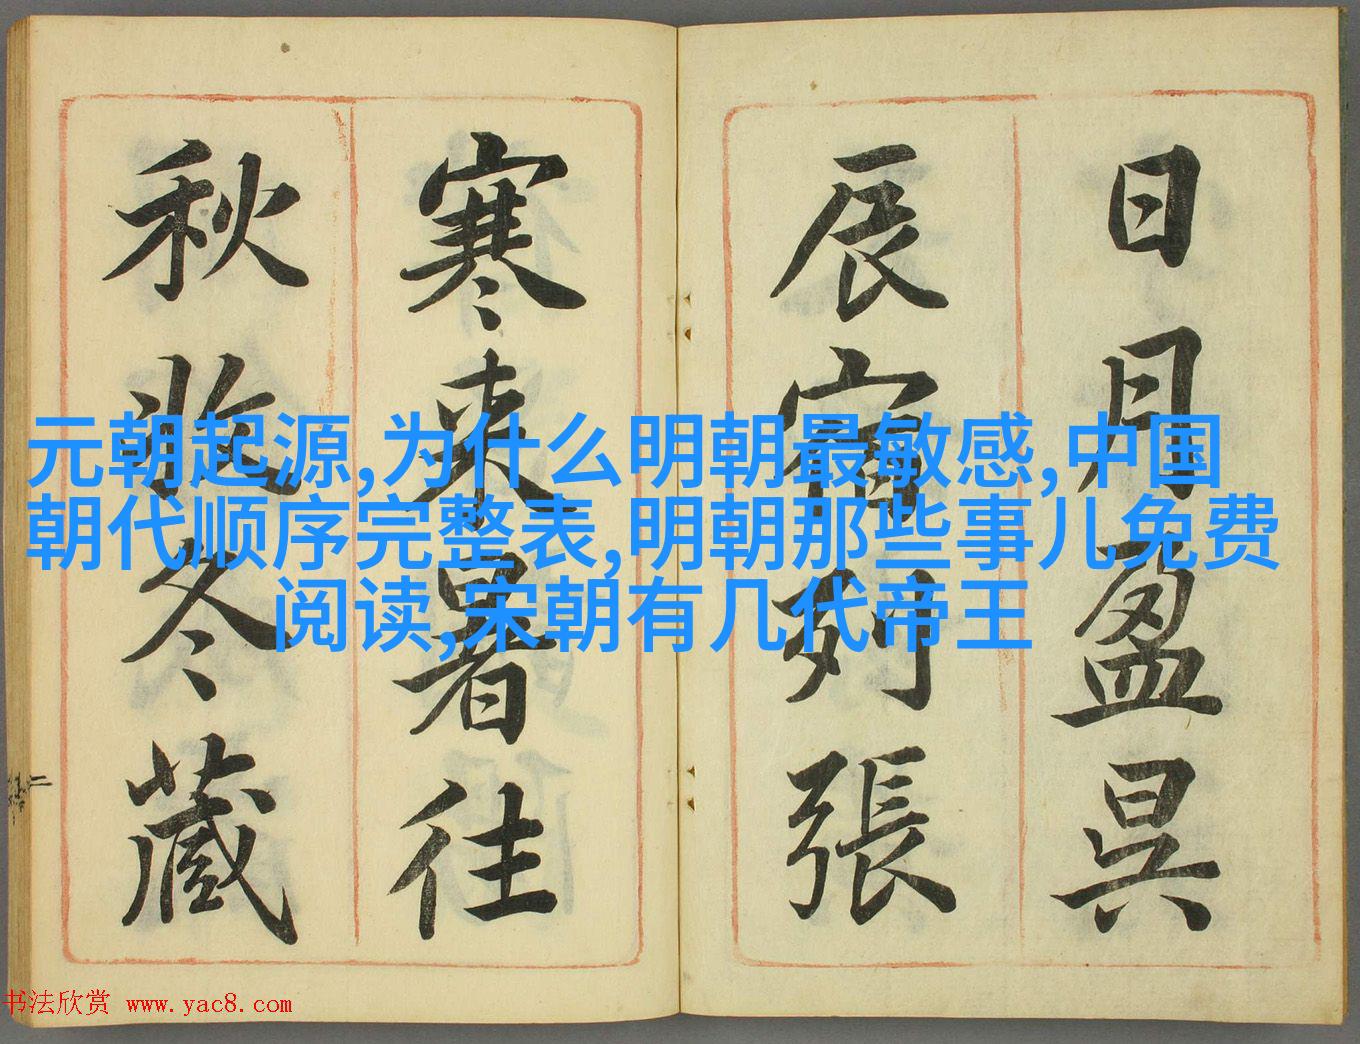 日月盈昃
辰宿列張
寒來暑往
秋收冬藏
元朝起源,为什么明朝最敏感,中国
朝代顺序完整表,明朝那些事儿免费
阅读,宋朝有几代帝王
书法欣赏 www.yac8.com